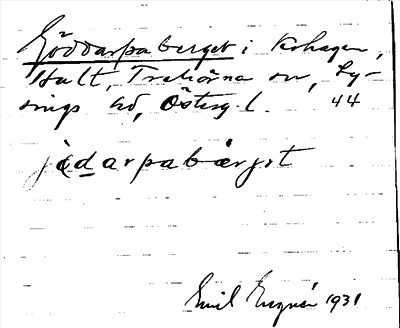 Göddarpaberget i Kohagen,
Hult, Trehörna sn, Ly-
sings hd, Österg. l. 44
jödarpabærjɛt
Emil Ezgnér 1931